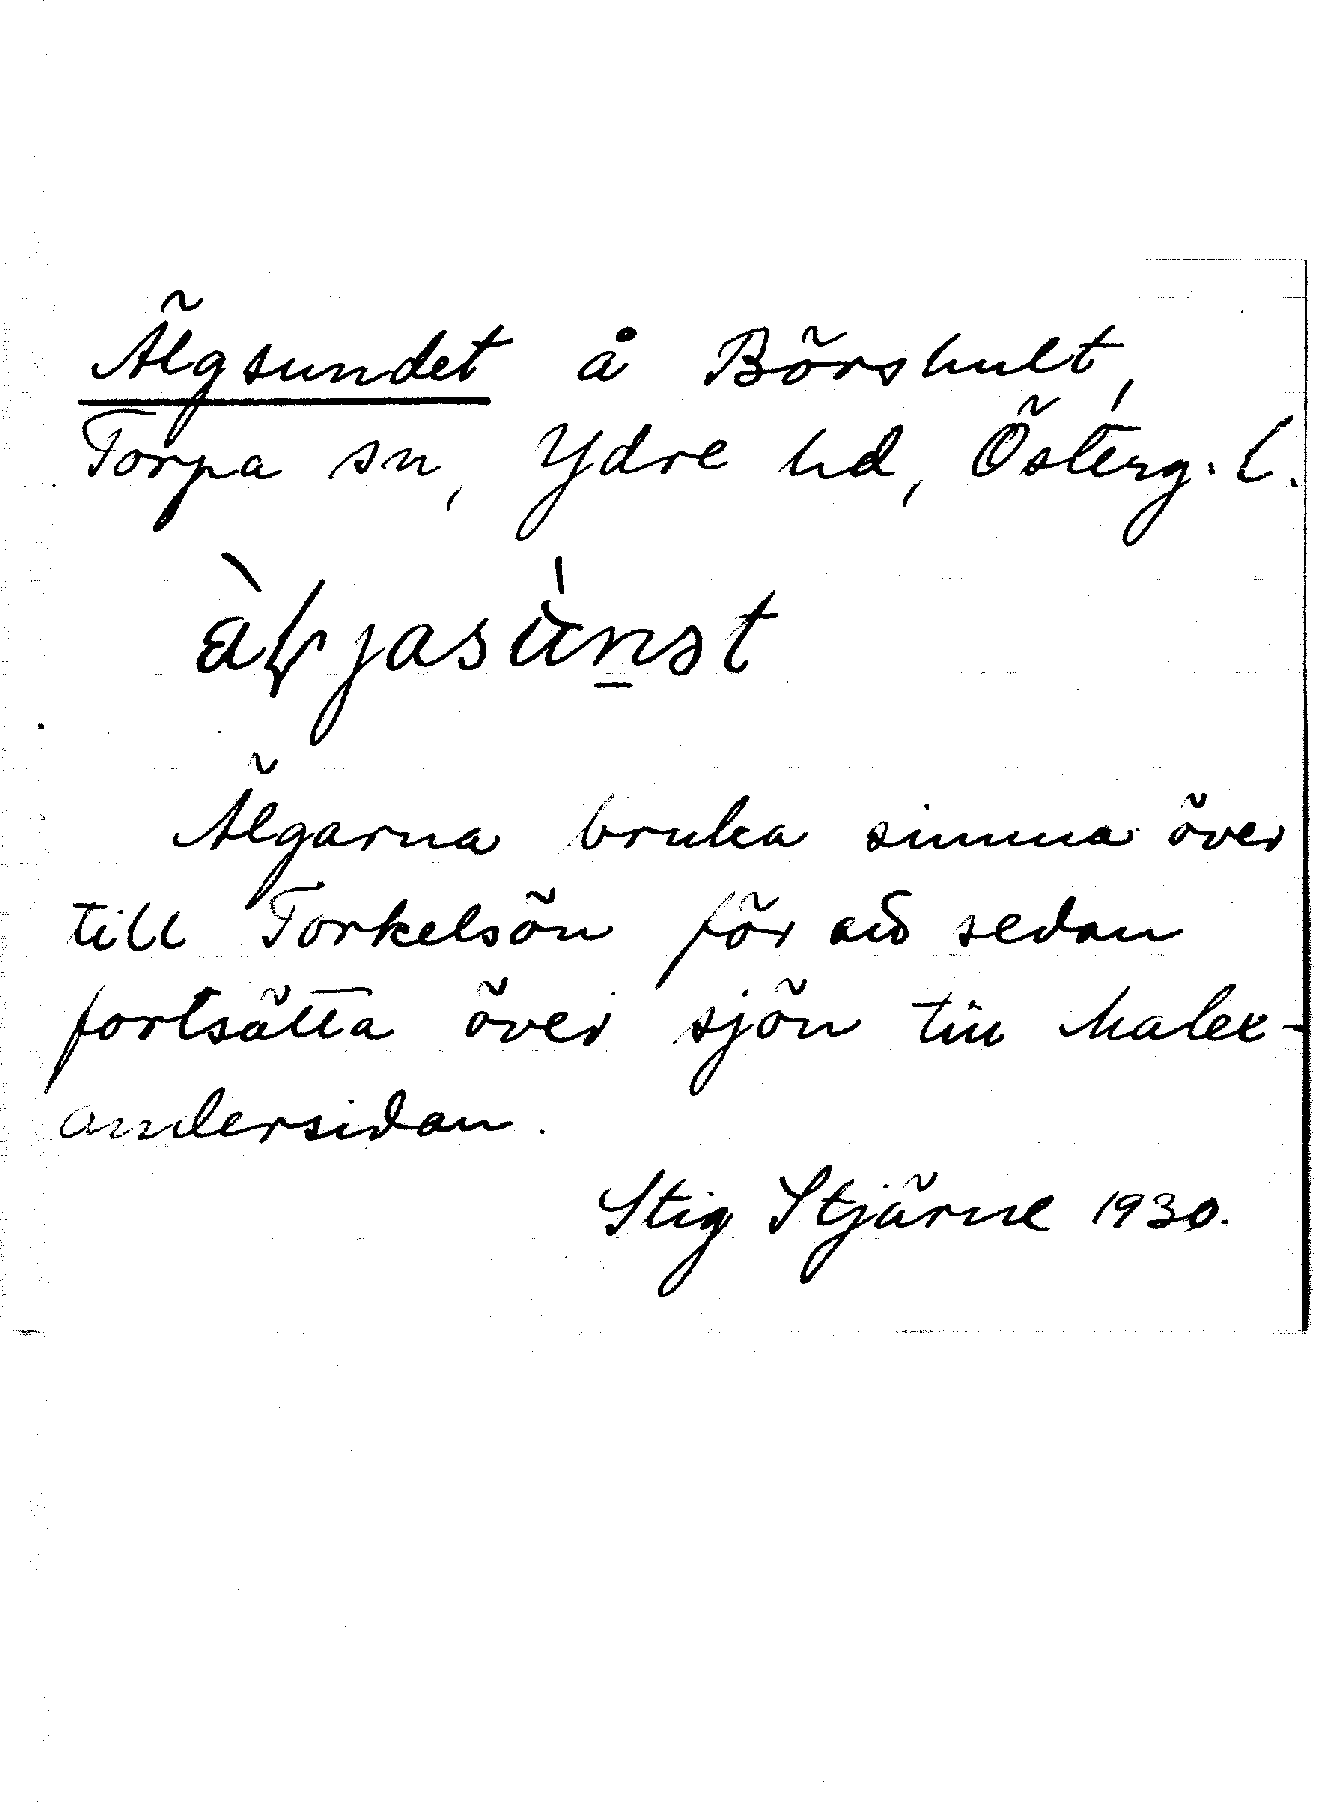 Älgsundet å Börshult,
Torpa sn, Ydre hd, Österg. l.
Älgarna bruka simma över
till Torkelsön för att sedan
fortsätta över sjön till Malex-
andersidan.
Stig Stjärne 1930.